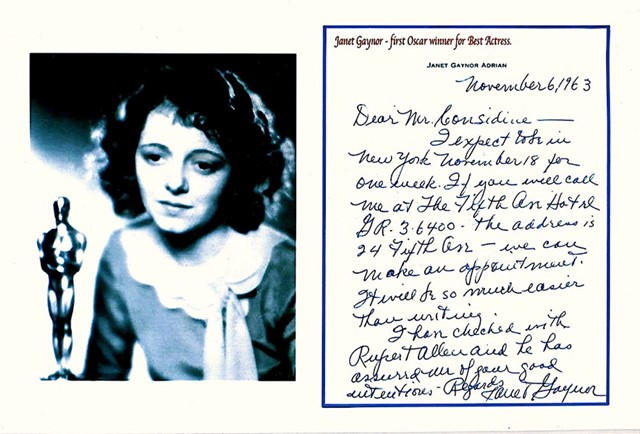 Janet Gaynor - first Oscar winner for Best Actress.
JANET GAYNOR ADRIAN
November 6, 1963
Dear Mr. Considine —
I expect to be in
New York November 18 for
one week. If you will call
me at The Fifth Av Hotel
GR. 3-6400 - The address is
24 Fifth Av — we can
make an appointment.
It will be so much easier
than writing.
I have checked with
Rupert Allan and he has
assured me of your good
intentions - Regards
Janet Gaynor